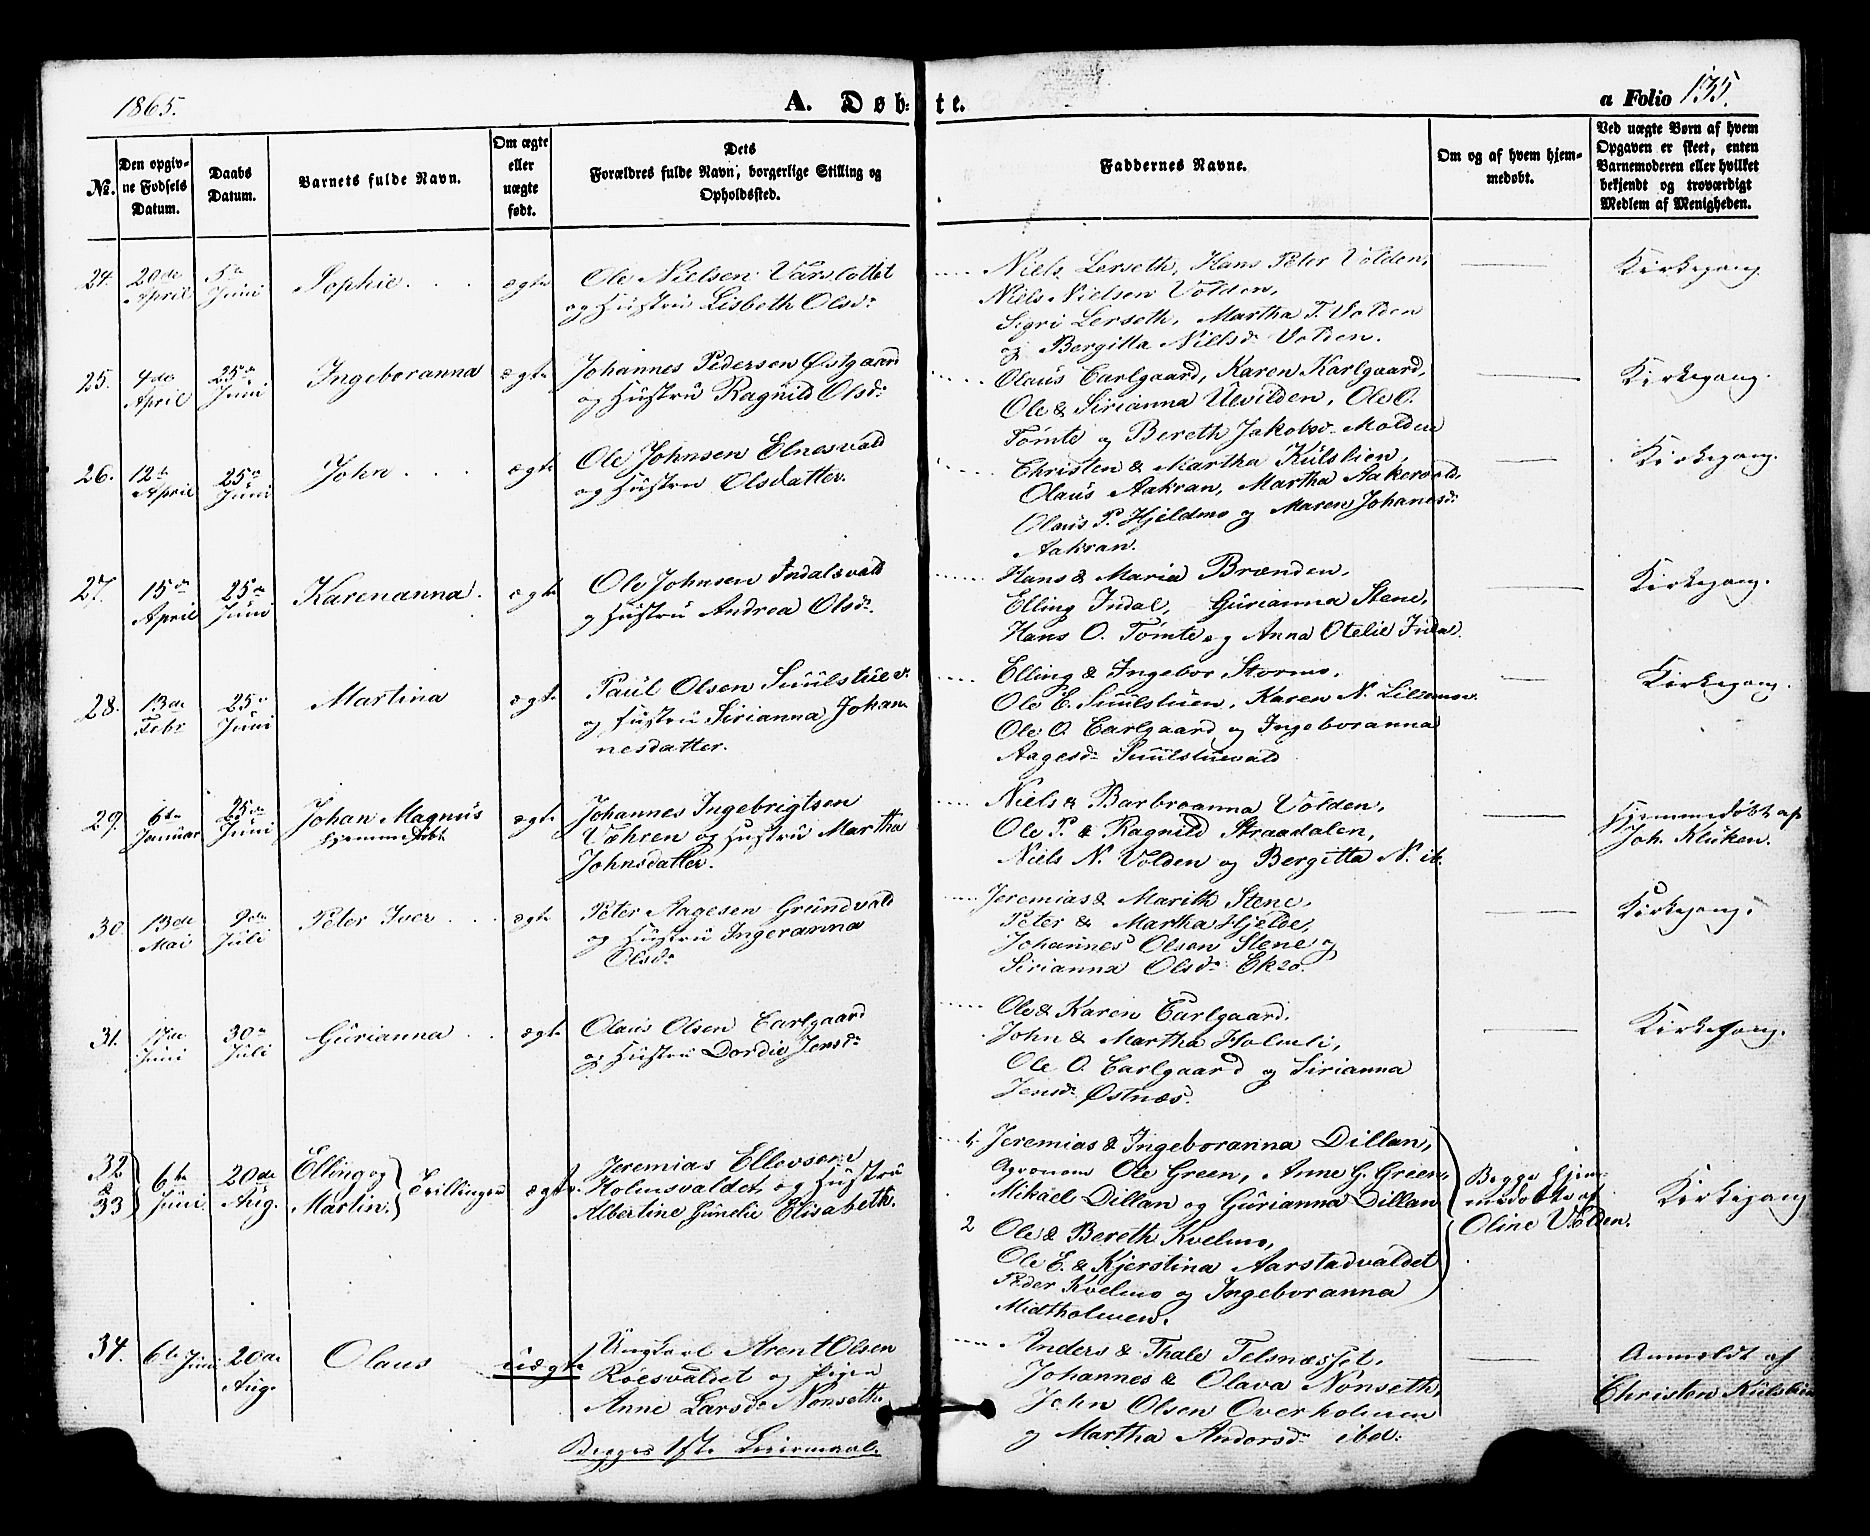 1865.
A. Døb-
te.
a Folio 135.
No.
Den opgiv-
ne Fødsels
Datum.
Daabs
Datum.
Barnets fulde Navn.
Om ægte
eller
uægte
født.
Dets
Forældres fulde Navn, borgerlige Stilling og
Opholdssted.
Faddernes Navne.
Om og af hvem hjem-
medøbt.
Ved uægte Børn af hvem
Opgaven er skeet, enten
Barnemoderen eller hvilket
bekjendt og troværdigt
Medlem af Menigheden.
24.
20de
April
5te
Juni
Sophie.
ægte
Ole Nielsen Varslottet
og Hustru Lisbeth Olsdr
Niels Lerseth, Hans Peter Volden,
Niels Nielsen Volden,
Sigri Lerseth, Martha T. Volden
og Bergitta Nielsdr Volden.
Kirkegang
25.
4de
April
25de
Juni
Ingeboranna
ægte
Johannes Pedersen Østgaard
og Hustru Ragnild Olsdr
Olaus Carlgaard, Karen Karlgaard,
Ole & Sirianna Ulvilden, Ole O.
Tømte og Bereth Jakobsdr Molden
Kirkegang.
26.
12te
April
25de
Juni
John
ægte
Ole Johnsen Elnesvald
og Hustru Olsdatter.
Christen & Martha Kulslien,
Olaus Aakran, Martha Aakervold,
Olaus P. Hjeldmo og Maren Johansdr
Aakran.
Kirkegang.
27.
15de
April
25de
Juni
Karenanna.
ægte
Ole Johnsen Indalsvald
og Hustru Andrea Olsdr
Hans & Maria Brænden,
Elling Indal, Gurianna Stene,
Hans O. Tømte og Anna Otelie Indal.
Kirkegang.
28.
13de
Febr
25de
Juni
Martina
ægte
Paul Olsen Suulstuev.
og Hustru Sirianna Johan
nesdatter.
Elling & Ingebor Stormo,
Ole E. Suulstuen, Karen N. Lillemo.
Ole O. Carlgaard og Ingeboranna
Aagesdr Suulstuevald
Kirkegang.
29.
6te
Januar
25de
Juni
Johan Magnus
hjemmedøbt
ægte
Johannes Ingebrigtsen
Væhren og Hustru Martha
Johnsdatter.
Niels & Barbroanna Volden,
Ole P. & Ragnild Straadalen,
Niels N. Volden og Bergitta N. ib.
Hjemmedøbt af
Joh. Kluken.
30.
13de
Mai
9de
Juli
Peter Iver
ægte
Peter Aagesen Grundvald
og Hustru Ingeranna
Olsdr
Jeremias & Marith Stene,
Peter & Martha Hjelde,
Johannes Olsen Stene og
Sirianna Olsdr Ekro.
Kirkegang.
31.
17de
Juni
30te
Juli
Gurianna
ægte
Olaus Olsen Carlgaard
og Hustru Dordie Jensdr
Ole & Karen Carlgaard.
John & Martha Holmli,
Ole O. Carlgaard og Sirianna
Jensdr Østnæs.
Kirkegang.
32
&
33
6te
Juni
20de
Aug.
Elling og
Martin.
Tvillinger
ægte.
Jeremias Ellevsen
Holmsvaldet og Hustru
Albertine Gunelie Elisabeth.
1. Jeremias & Ingeboranna Dillan,
Agronom Ole Green, Anne G. Green,
Mikael Dillan og Gurianna Dillan
2 Ole & Bereth Kvelmo,
Ole E. & Kjerstina Aarstadvaldet
Peder Kvelmo og Ingeboranna
Midtholmen.
Begge hjem
medøbte af
Oline Volden.
Kirkegang
34.
6te Juni
20de
Aug.
Olaus
uægte
Ungkarl Arent Olsen
Röesvaldet og Pigen
Anne Larsdr Nonseth.
Begges 1ste Leiermaal.
Anders & Thale Telsnæsset,
Johannes & Olava Nonseth,
John Olsen Overholmen
og Martha Andersdr ibd.
Anmeldt af
Christen Kulslien